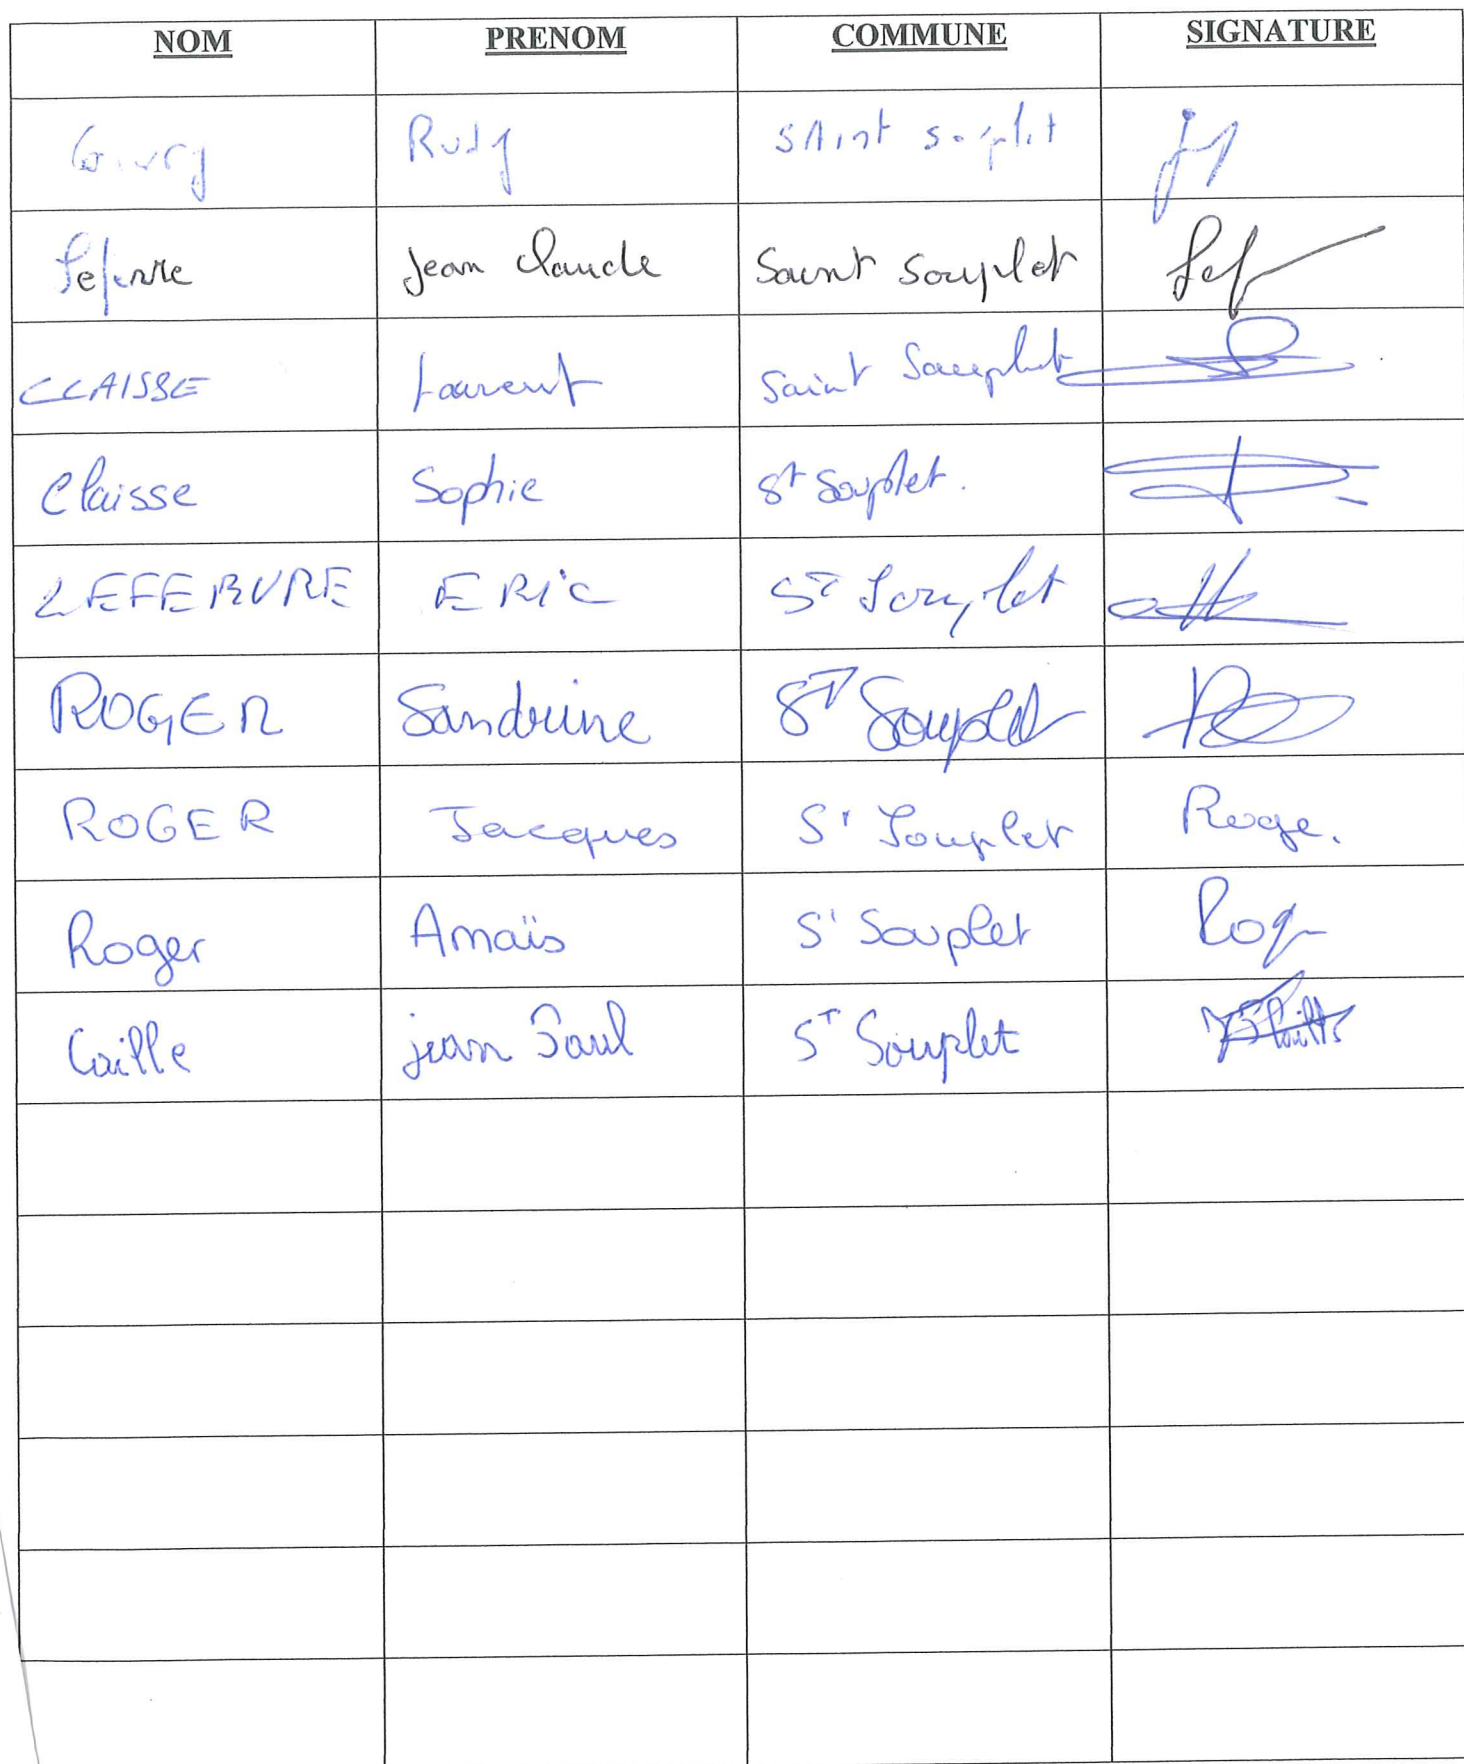 NOM PRENOM COMMUNE SIGNATURE
Rudy SAint Souplet
Lefevre Jean Claude Saint Souplet Lef
CLAISSE Laurent Saint Souplet
Claisse Sophie St Souplet.
LEFEBVRE ERic ST Souplet
ROGER Sandrine ST Souplet
ROGER Jacques St Souplet Roge.
Roger Amaïs St Souplet Roger
Caille jean Paul ST Souplet